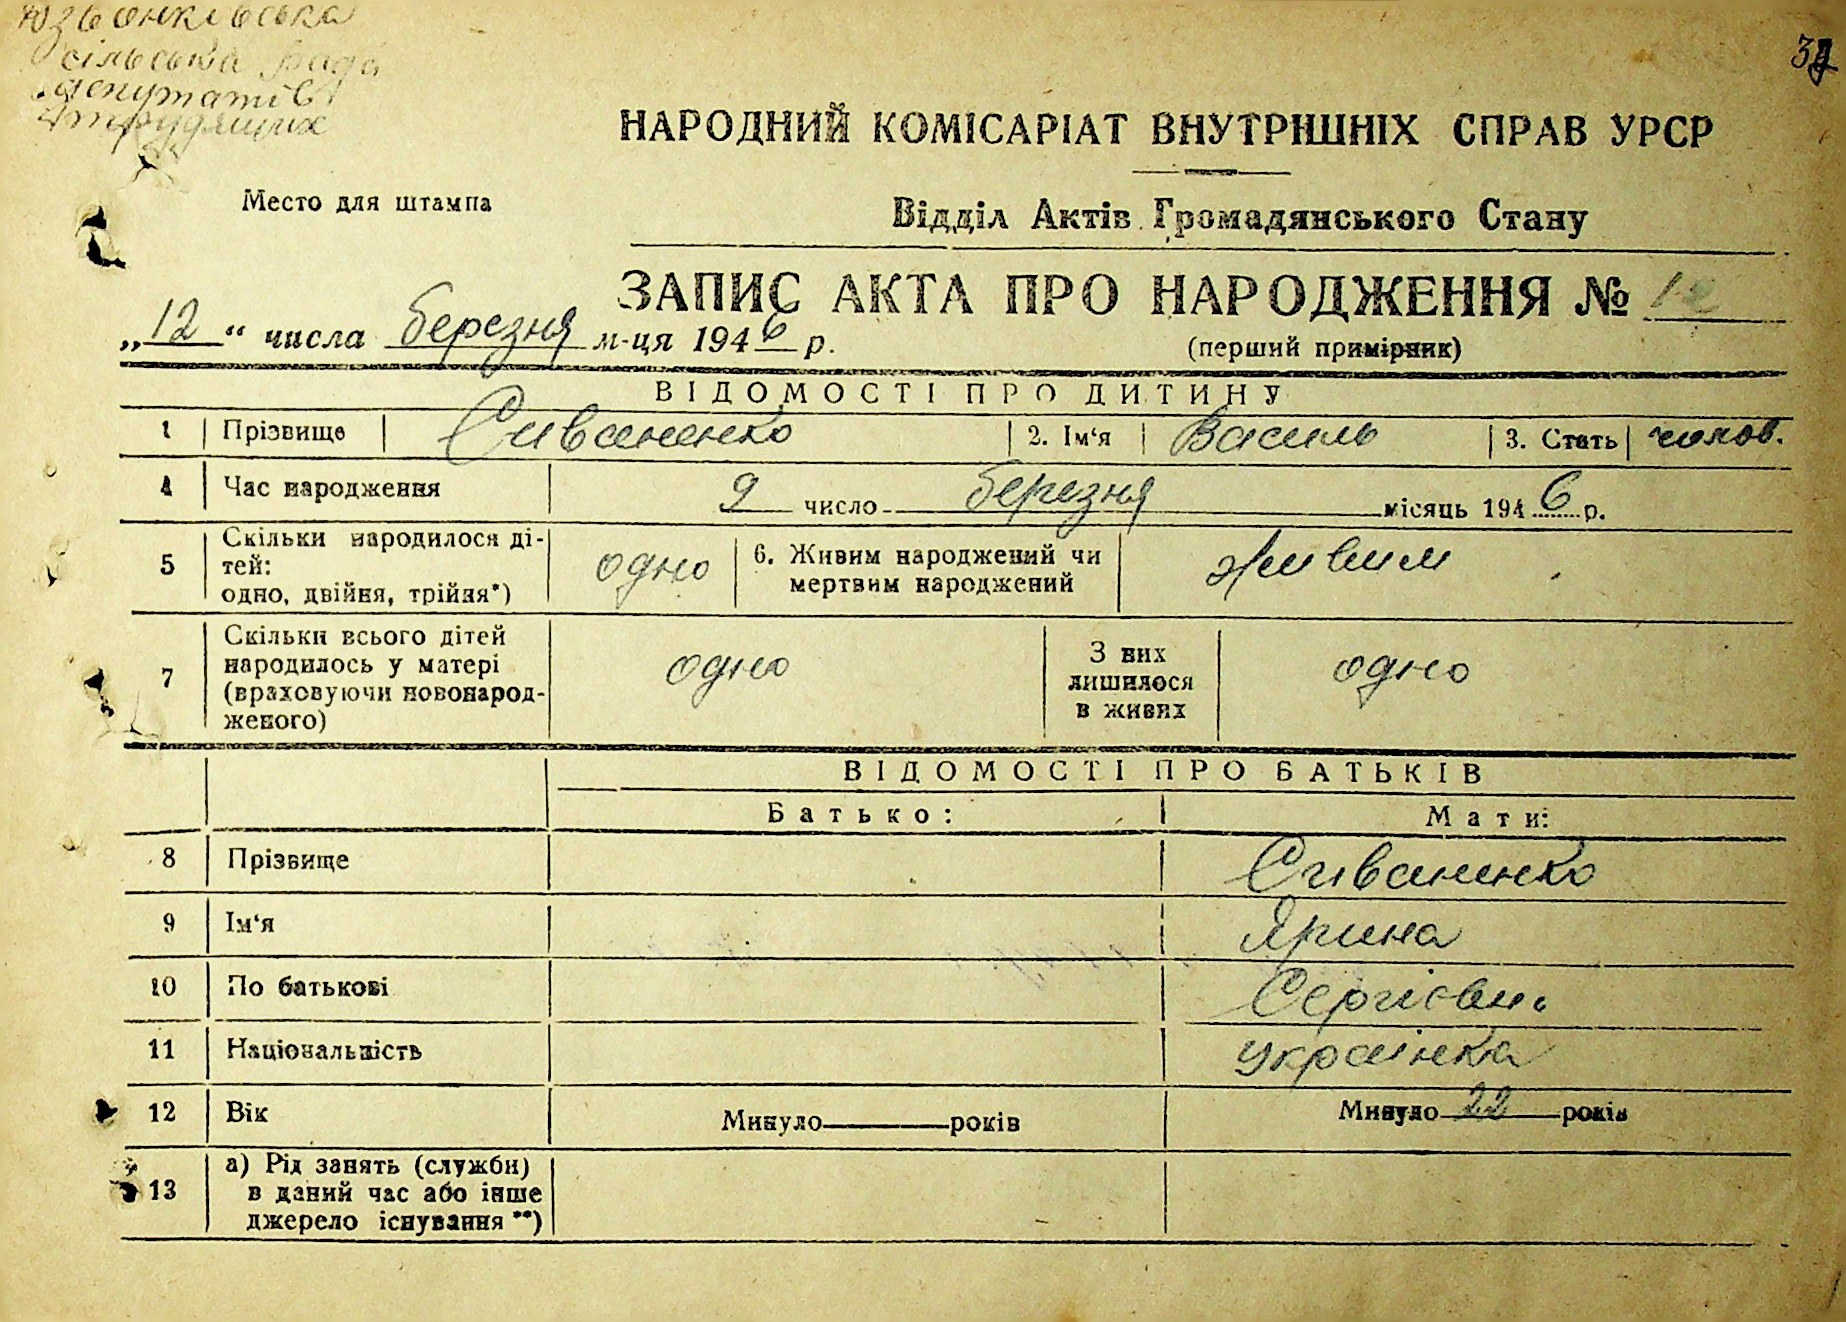 сільська рада
депутатів
трудящих
НАРОДНИЙ КОМІСАРІАТ ВНУТРІШНІХ СПРАВ УРСР
Место для штампа
Відділ Актів Громадянського Стану
ЗАПИС АКТА ПРО НАРОДЖЕННЯ № 12
„12“ числа березня м-ця 1946 р.
(перший примірник)
ВІДОМОСТІ ПРО ДИТИНУ
1 Прізвище Сиваненко 2. Ім'я Василь 3. Стать чолов.
4 Час народження 9 число березня місяць 1946 р.
5 Скільки народилося ді-
тей:
одно, двійня, трійня*) одно
6. Живим народжений чи
мертвим народжений живим
7 Скільки всього дітей
народилось у матері
(враховуючи новонарод-
женого) одно
З них
лишилося
в живих одно
ВІДОМОСТІ ПРО БАТЬКІВ
Батько: Мати:
8 Прізвище Сиваненко
9 Ім'я Ярина
10 По батькові Сергіївн.
11 Національність українка
12 Вік Минуло років Минуло 22 років
13 а) Рід занять (служби)
в даний час або інше
джерело існування **)